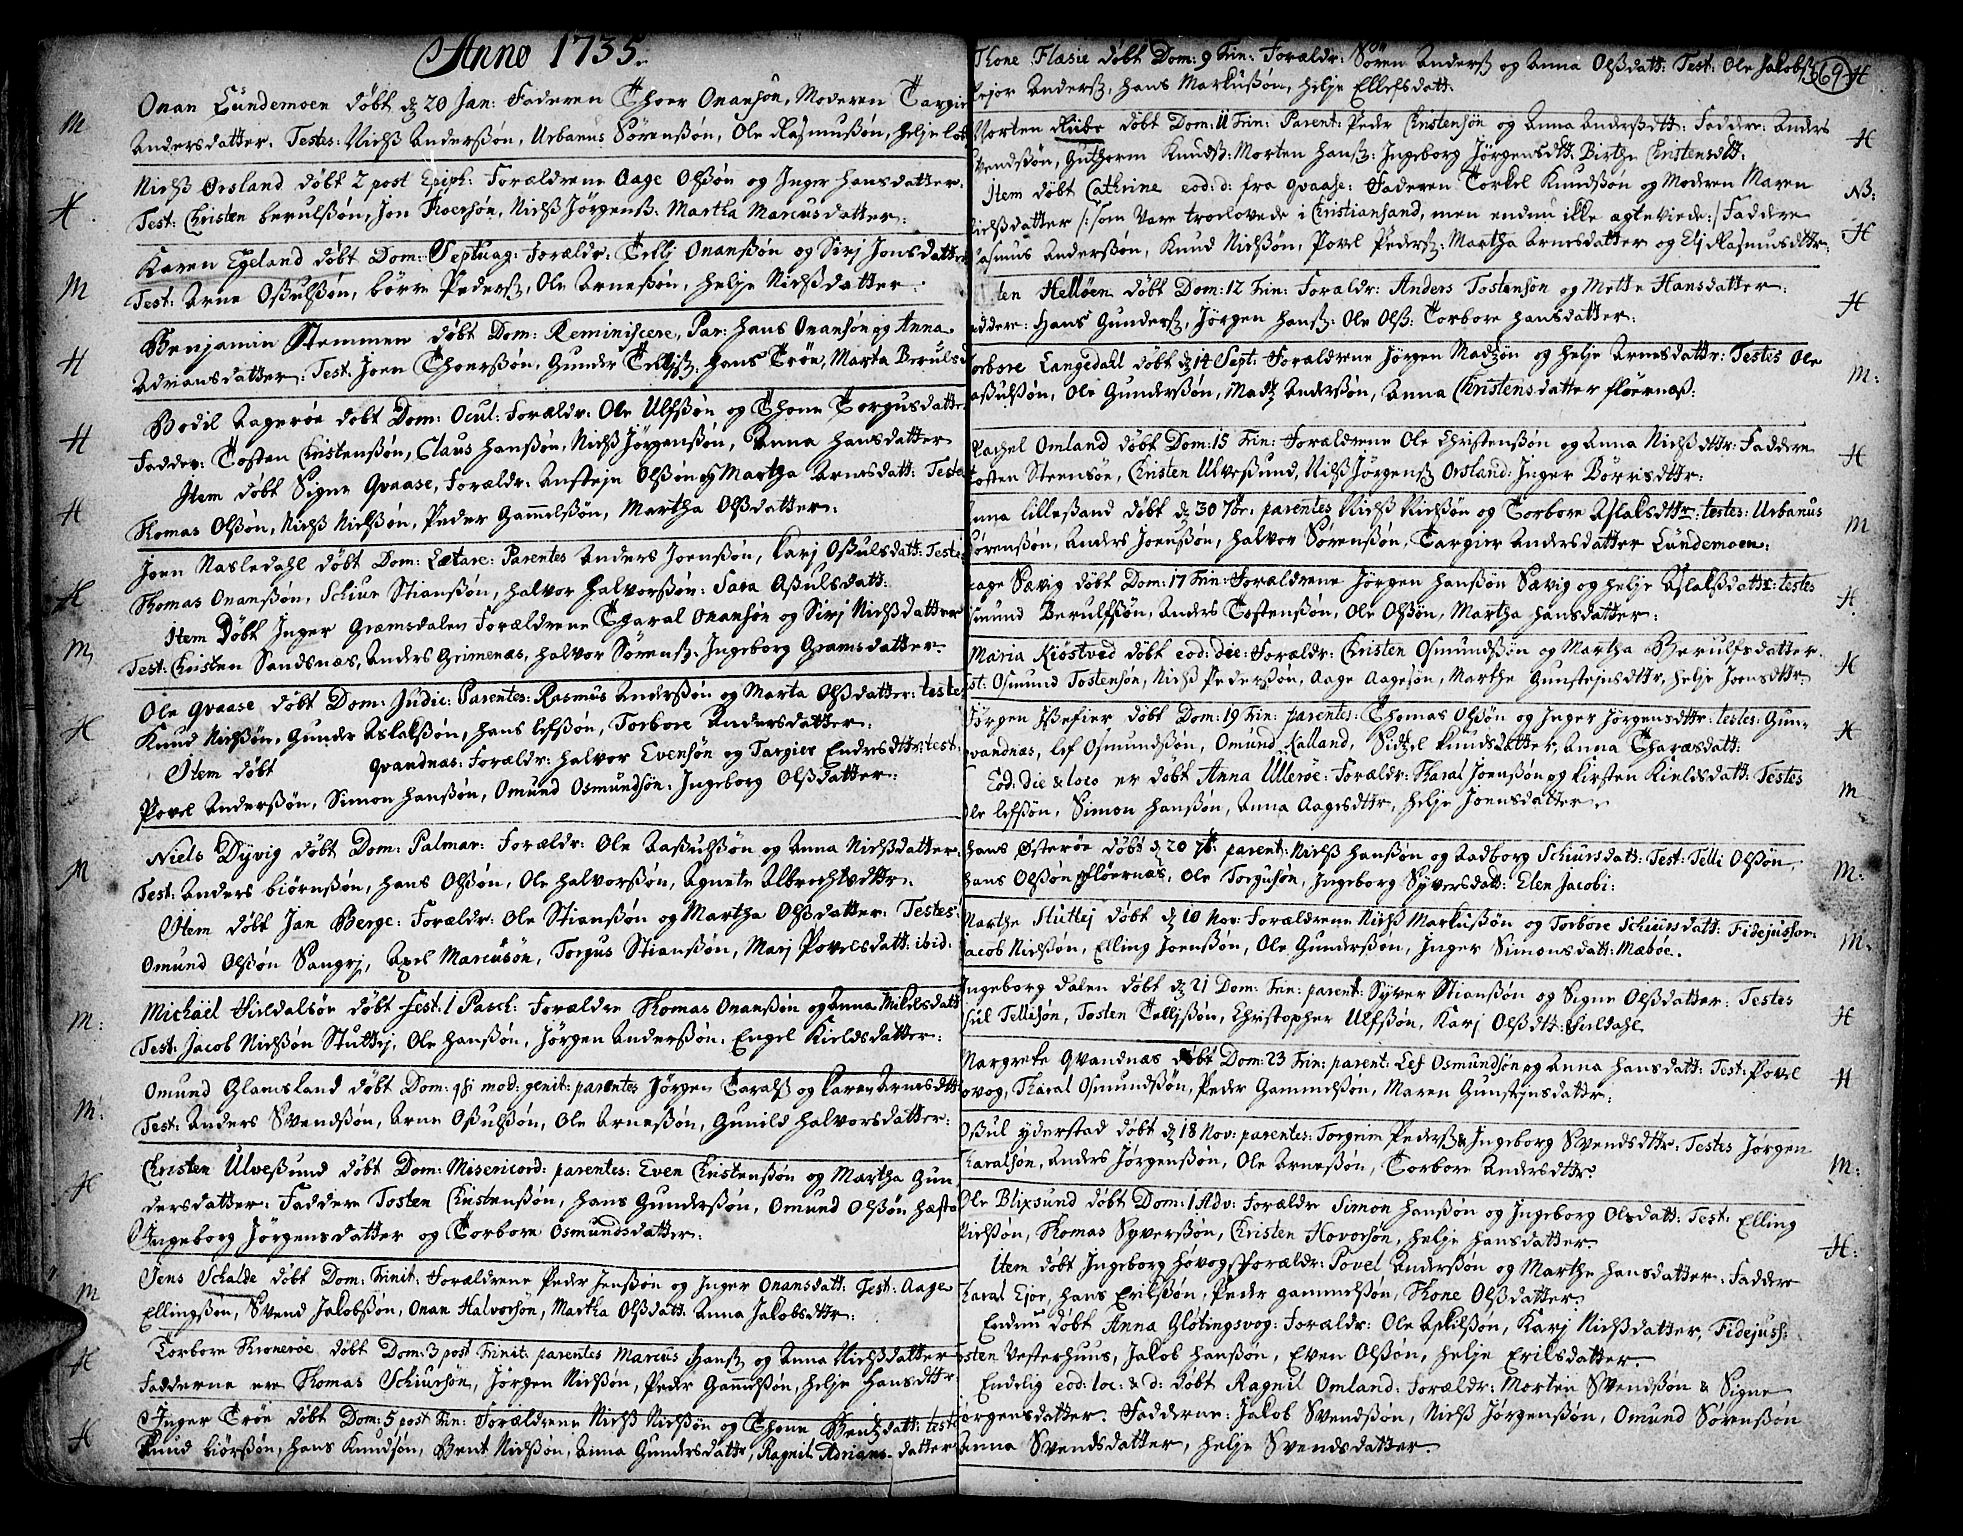 Anno 1735.
M Onan Lundemoen døbt d. 20 Jan: Faderen Thoer Onansøn, Moderen Targier
Andersdatter. Testes: Nielß Anderßøn, Urbanus Sørenßøn, Ole Rasmußøn, Helje
H Nielß Orsland døbt 2 post Epiph: Forældrene Aage Olßøn og Inger Hansdatter.
Test: Christen Berulßøn, Jon Thoersøn, Nielß Jørgenß: Martha Marcusdatter:
M Karen Egeland døbt Dom: Septuag: Forældr: Tellj Onanßøn og Sirj Jonsdatter
Test: Arne Oßulßøn, Børre Pederß, Ole Arneßøn, Helje Nielßdatter:
H Benjamin Stemmen døbt Dom: Reminiscere, Par: Hans Onansøn og Anna
Adriansdatter: Test: Joen Thoerßøn, Gunder Telljß, Hans Trøe, Marta Beruls
H Bodil Aagerøe døbt Dom: Ocul: Forældr: Ole Ulfßøn og Thone Torgusdatter
Fadder: Tosten Christenßøn, Claus Hanßøn, Nielß Jørgenßøn, Anna Hansdatter
H Item døbt Signe Qvaase, Forældr: Ansteje Olßøn og Martha Arnesdatt: Testes
Thomas Olßøn, Nielß Nielßøn, Peder Gammelßøn, Martha Olßdatter:
H Joen Nasledahl døbt Dom: Lætare: Parentes Anders Joenßøn, Karj Oßulsdatt: Teste
Thomas Onanßøn, Schiur Stianßøn, Halvor Halvorßøn: Sara Aßulsdatt:
M Item Døbt Inger Gramsdalen Forældrene Tharal Onansøn og Sirj Nielßdatter
Test: Christen Sandsnæs, Anders Grimenæs, Halvor Sørenß: Ingeborg Gramsdatter.
H Ole Qvaase døbt Dom: Judic: Parentes: Rasmus Anderßøn og Marta Olßdatter: teste
Knud Nielßøn, Gunder Aslakßøn, Hans Lefßøn, Torbore Andersdatter:
Item døbt Qvandnæs: Forældr: Halvor Evensøn og Targier Endresdttr: test:
Povel Anderßøn, Simon Hanßøn, Omund Osmundsøn: Ingeborg Olßdatter:
M Niels Dyvig døbt Dom: Palmar: Forældr: Ole Aaßulßøn og Anna Nielßdatter
Test: Anders Biørnßøn, Hans Olßøn, Ole Halvorßøn, Agnete Albrechtsdttr:
Item døbt Jan Berge: Forældr: Ole Stianßøn og Martha Olßdatter: Testes:
Omund Olßøn Sangrj, Axel Marcusøn, Torgus Stianßøn, Marj Povelsdatt: ibid:
M: Michäel Hieldalsøe døbt Fest: 1 Pasch: Forældre Thomas Onanßøn og Anna Mikelsdatt
Test: Jacob Nielßøn Stuttej, Ole Hanßøn, Jørgen Anderßøn. Engel Kieldsdatter:
M: Omund Glamsland døbt Dom: qsi mod: genit: parentes Jørgen Taralß og Karen Arnesdtt
Test: Anders Svendßøn, Arne Oßulßøn, Ole Arneßøn, Gunild Halvorsdatter:
H Christen Ulveßund døbt Dom: Misericord: parentes: Even Christenßøn og Martha Gun
dersdatter: Faddere Tosten Christenßøn, Hans Gunderßøn, Omund Olßøn Hæsta
Ingeborg Jørgensdatter og Torbore Osmundsdatter:
M Jens Schalde døbt Dom: Trinit: Forældrene Peder Jenßøn og Inger Onansdatt: Test: Aage
Ellingßøn, Svend Jakobßøn, Onan Halvorsøn, Martha Olßdatt: Anna Jakobsdttr:
H Torbore Kronerøe døbt Dom: 3 post Trinit: parentes Marcus Hansß og Anna Nielßdatter
Fadderne ere Thomas Schiursøn, Jørgen Nielßøn, Peder Gammelßøn, Helje Hansdttr
H Inger Trøe døbt Dom: 5 post Trin: Forældrene Nielß Nielßøn og Thone Bentzdatt: teste
Knud Biørßøn, Hans Knudsøn, Bent Nielßøn, Anna Gundersdatter, Ragnil Adrians-datter
369
Thone Flasie døbt Dom: 9 Trin: Forældr: Søren Anderß og Anna Olßdatt: Test: Ole Jakobß H
Anderß, Hans Markußøn, Helje Ellefsdatt:
Morten Riibe døbt Dom: 11 Trin: Parent: Peder Christensøn og Anna Anderßdtt: Faddere: Anders H
Svendßøn, Guthorm Knudß: Morten Hanß: Ingeborg Jørgensdtt: Birthe Christensdtt:
Item døbt Cathrine eod: d: fra Qvaase: Faderen Torkel Knudßøn og Moderen Maren NB:
Nielßdatter /: som vare trolovede i Christiansand, men endnu ille ægteviede:/ Faddere H
Rasmus Anderßøn, Knud Nielßøn, Povel Pederß: Martha Arnesdatter og Elj Rasmusdttr:
ten Helløen døbt Dom: 12 Trin: Forældr: Anders Tostensøn og Mette Hansdatter: H
Faddere: Hans Gunderß, Jørgen Hanß: Ole Olß: Torbore Hansdatter:
Torbore Langedahl døbt d. 14 Sept: Forældrene Jørgen Madtzøn og Helje Arnesdattr: Testes Ole M:
Aaßulßøn, Ole Gunderßøn, Madtz Anderßøn, Anna Christensdatter Fløernæß.
Rachel Omland døbt Dom: 15 Trin: Forældrene Ole Christenßøn og Anna Nielßdttr: Faddere H
Tosten Steensøe, Christen Ulveßund, Nielß Jørgenß Orsland: Inger Børresdttr:
Anna Lilleßand døbt d. 30 7br. parentes Nielß Nielßøn og Torbore Aslaksdttr: testes: Urbanus M
Sørenßøn, Anders Joenßøn, Halvor Sørenßøn, Targier Andersdatter Lundemoen:
Aage Sævig døbt Dom: 17 Trin: Forældrene Jørgen Hanßøn Sævig og Helje Aslakßdattr: testes H
Berulfßøn, Anders Tostenßøn, Ole Olßøn, Martha Hansdatter:
Maria Kiøstved døbt eod: die: Forældr: Christen Osmundßøn og Martha Berulfsdatter. H
Test: Osmund Tostensøn, Nielß Pederßøn, Aage Aagesøn, Marthe Gunstejnsdttr, Helje Joensdttr:
Jørgen Refier døbt Dom: 19 Trin: parentes: Thomas Olßøn og Inger Jørgensdttr: testes: Gun- H
Qvandnæs, Lef Osmundßøn, Omund Kalland, Sidtzel Knudsdatter, Anna Tharæsdatt:
Eod: die & loco er døbt Anna Ullerøe: Forældr: Tharal Joenßøn og Kirsten Kieldsdatt: Testes M
Ole Lefßøn, Simon Hanßøn, Anna Aagesdttr, Helje Joensdatter.
Hans Østerøe døbt d. 20 parent: Nielß Hanßøn og Aadborg Schiursdatt: Test: Telli Olßøn, M:
Hans Olßøn Fløernæs, Ole Torgusøn, Ingeborg Syversdatt: Elen Jacobi:
Marthe Stuttej døbt d. 10 Nov: Forældrene Nielß Markußøn og Torbore Schiursdatt: Fidejussor: M:
Jacob Nielßøn, Elling Joenßøn, Ole Gunderßøn, Inger Simonsdatt: Mæbøe.
Ingeborg Dalen døbt d. 21 Dom: Trin: parent: Syver Stianßøn og Signe Olßdatter: Testes H
Tellisøn, Tosten Telljßøn, Christopher Ulfßøn, Karj Olßdtt: Huldahl
Margrete Qvandnæs døbt Dom: 23 Trin: parent: Lef Osmundsøn og Anna Hansdatt: Test: Povel H
Tharal Osmundßøn, Peder Gammelßøn, Maren Gunstejnsdattr:
Oßul Yderstad døbt d. 18 Nov: parentes: Torgrim Pederß & Ingeborg Svendsdttr: Testes Jørgen M:
Tharalsøn, Anders Jørgenßøn, Ole Arneßøn, Torbore Andersdttr.
Ole Blixsund døbt Dom: 1 Adv: Forældre Simon Hanßøn og Ingeborg Olsdatt: Test: Elling H:
Nielßøn, Thomas Syverßøn, Christen Hovorsøn, Helje Hansdatter.
Item døbt Ingeborg Høvog, Forældr: Povel Anderßøn og Marthe Hansdatter: Fadder
Tharal Ejde, Hans Erikßøn, Peder Gammelßøn, Thone Olßdatter.
Endnu døbt Anna Gløtingsvog: Forældr: Ole Askilßøn, Karj Nielßdatter, Fidejuss:
Tosten Vesterhuus, Jakob Hanßøn, Even Olßøn, Helje Eriksdatter.
Endelig eod: loc: & d: døbt Ragnil Omland: Forældr: Morten Svendßøn & Signe
Jørgensdatter. Fadderne: Jakob Svendßøn, Nielß Jørgenßøn, Omund Sørenßøn
Anna Svendsdatter, Helje Svendsdatter.